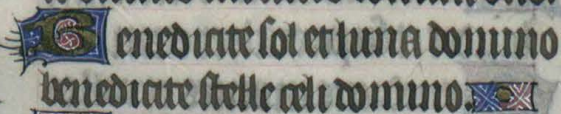 Benedicite sol et luna domino
benedicite stelle celi domino.